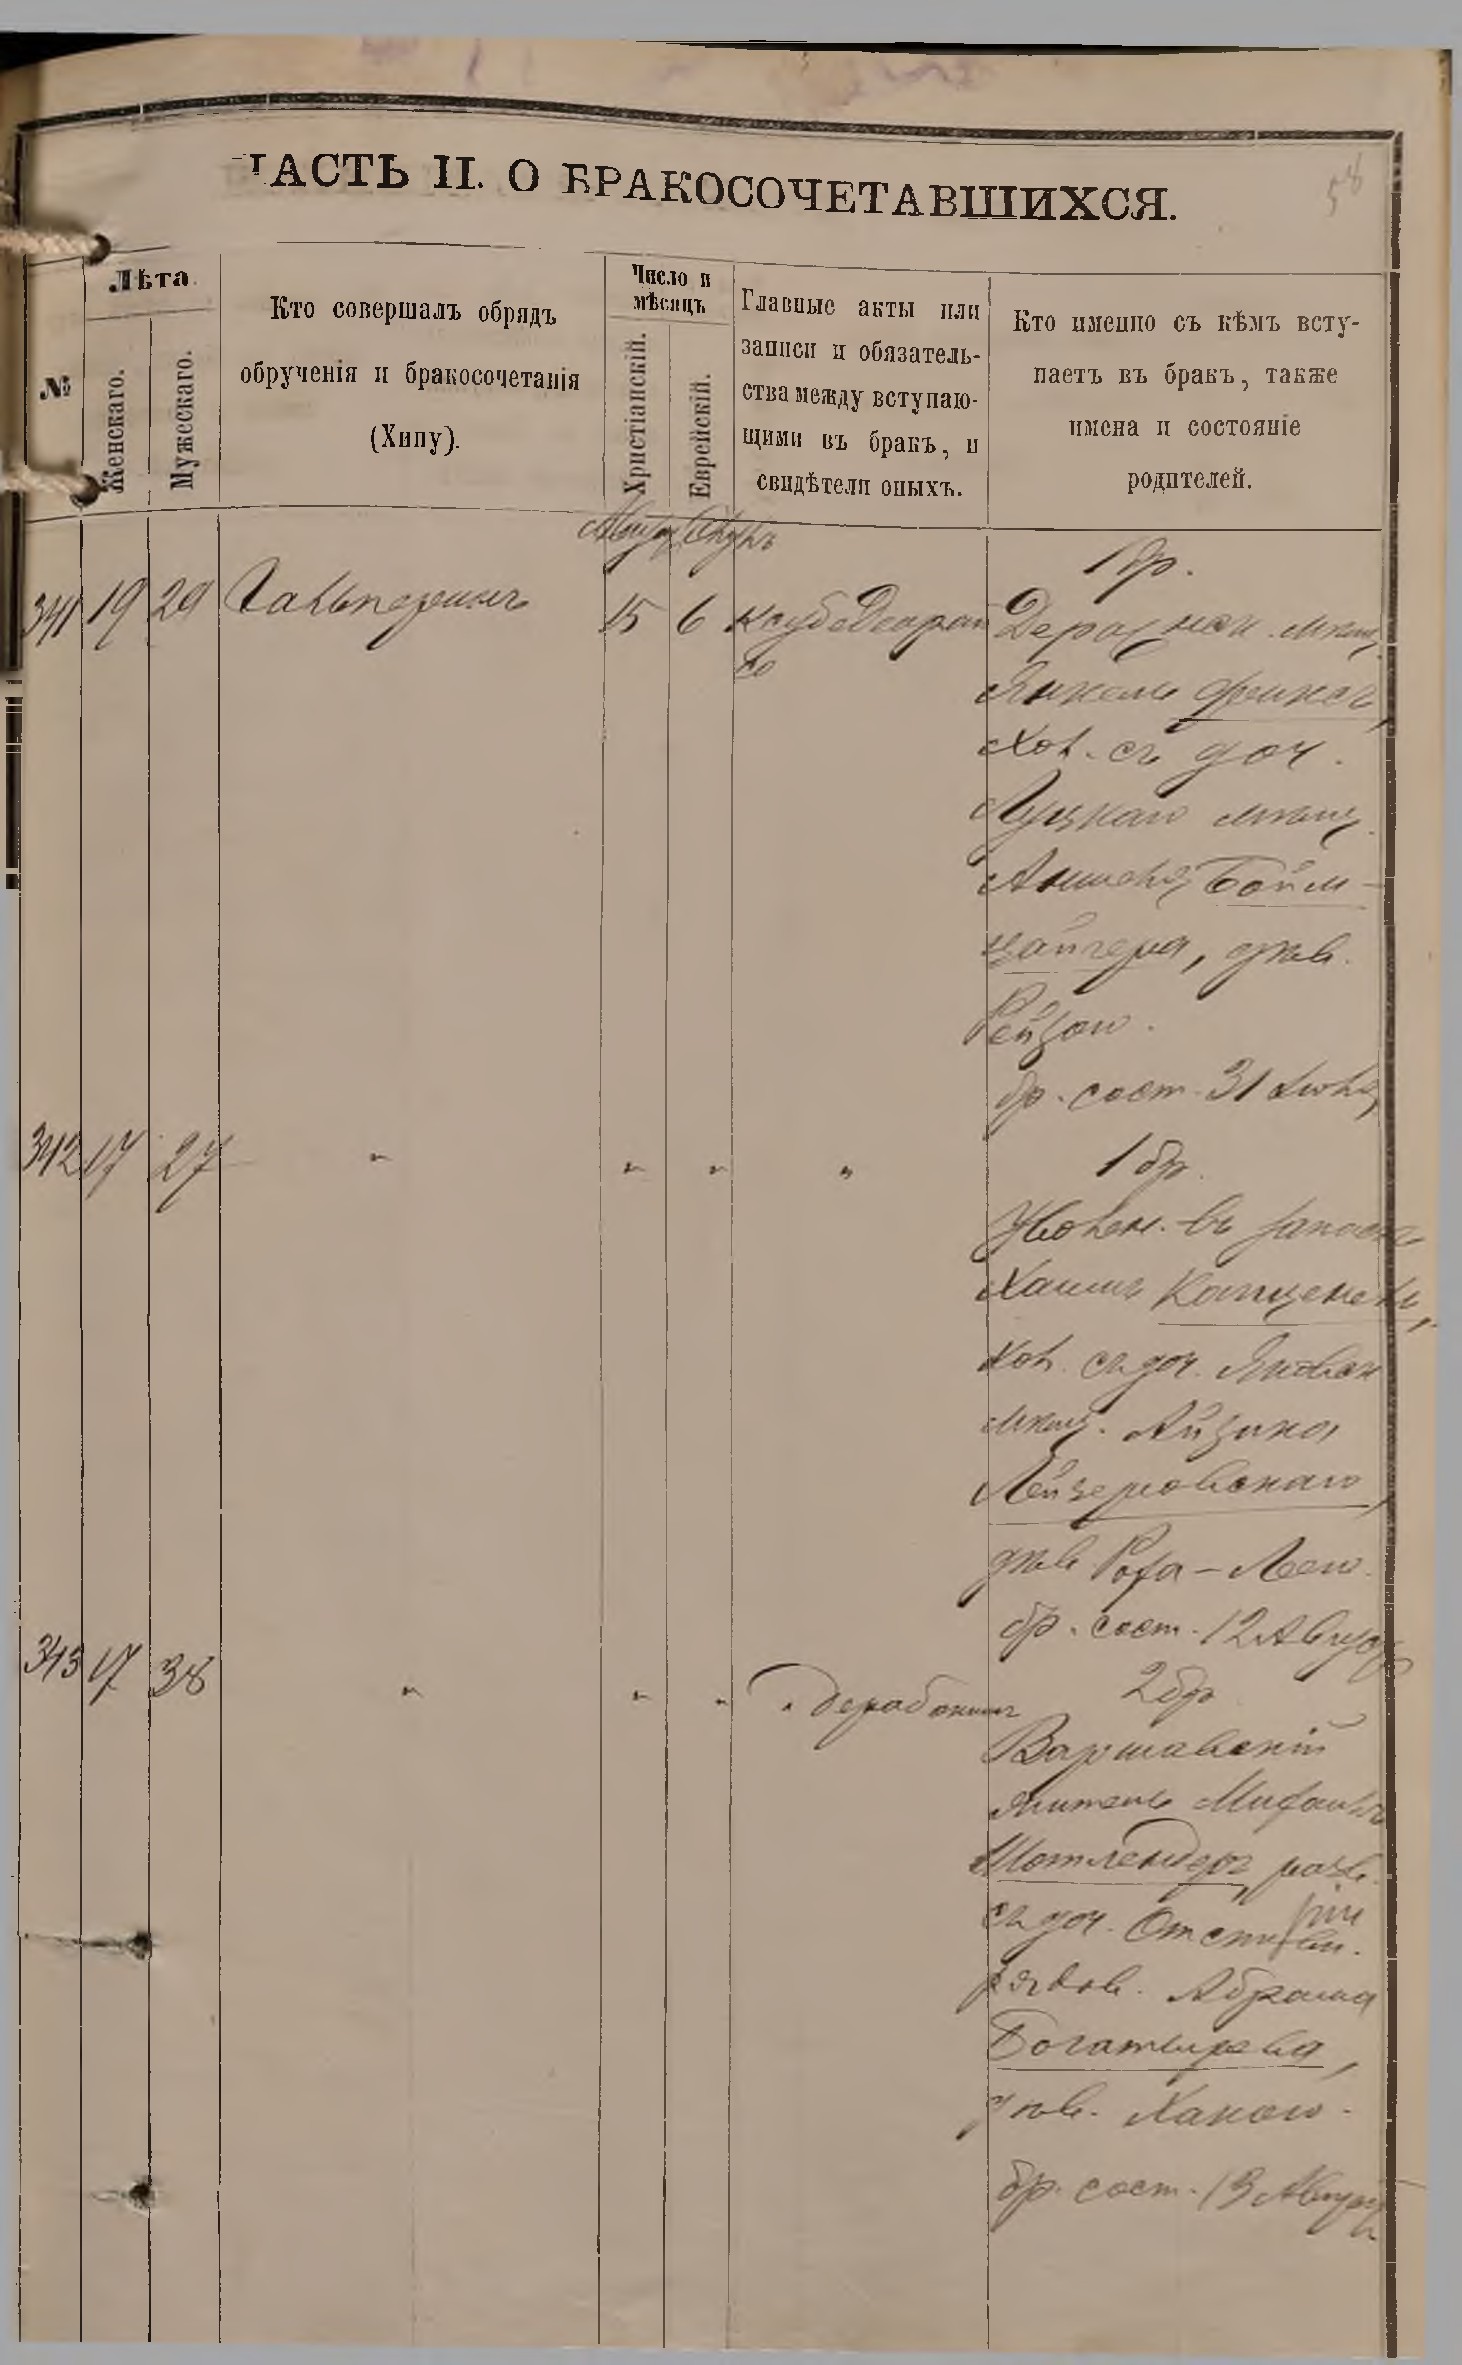 58
ЧАСТЬ II. О БРАКОСОЧЕТАВШИХСЯ.
№
Лѣта.
Женскаго.
Мужескаго.
Кто совершалъ обрядъ
обрученія и бракосочетанія
(Хипу).
Число и
мѣсяцъ
Христіанскій.
Еврейскій.
Главные акты или
записи и обязатель-
ства между вступаю-
щими въ бракъ, и
свидѣтели оныхъ.
Кто именно съ кѣмъ всту-
паетъ въ бракъ, также
имена и состояніе
родителей.
341 19 29 Гальперинъ 15 6
1 бр.
Дерачнск. мѣщ.
Янкель Финкъ,
хол. съ доч.
Луцкаго мѣщ.
Аншеля Бойм-
цайгера, дѣв.
Рейзою.
бр. сост. 31 Іюля
342 17 27 " " " "
1 бр.
Уволен. въ запасъ
Хаимъ
хол. съ доч. Яновск
мѣщ. Айзика
Лейзеровскаго,
дѣв. Роза-Лею.
бр. сост. 12 Август
343 17 38 " " " "
2 бр.
Варшавскій
житель Михаилъ
Шотлендеръ, разв.
съ доч. Отстав.
рядов. Абрама
Богатырева,
дѣв. Ханою.
бр. сост. 13 Август